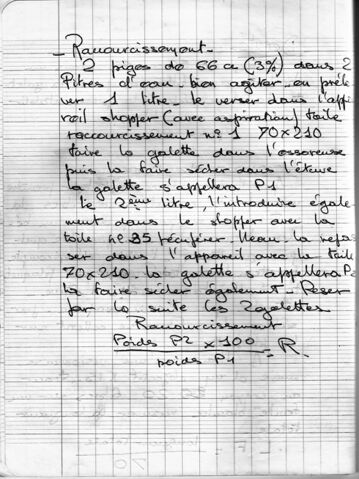 - Raccourcissement -
2 piges de 66 a (3%) dans 2
litres d'eau - bien agiter - en préle
ver 1 litre - le verser dans l'app
reil shopper (avec aspiration) toile
raccourcissement n° 1 70 x 210
faire la galette dans l'essoreuse
puis la faire sécher dans l'étuve
la galette s'appellera P1
Le 2ème litre, l'introduire égale-
ment dans le shopper avec la
toile n° 35 récupérer l'eau - la repas
ser dans l'appareil avec la toile
70 x 210. la galette s'appellera P2
la faire sécher également - Peser
par la suite les 2 galettes
Raccourcissement
Poids P2 x 100 = R.
poids P1